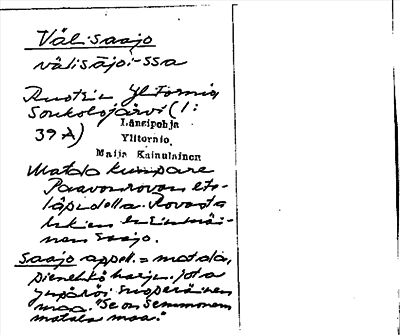 Välisaajo
välisäjoi-ssa
Ruotsin Ylitornio,
Soukolojärvi (1:
39 A)
Länsipohja
Ylitornio
Maija Kainulainen
Matala kumpare
Paavonrovan ete-
läpuolella. Rovasta
lukien ensimmäi-
nen saajo.
saajo appell. = matala,
pienehkö harju, jota
ympäröi suoperäinen
maa. "Se on semmonen
matala maa."